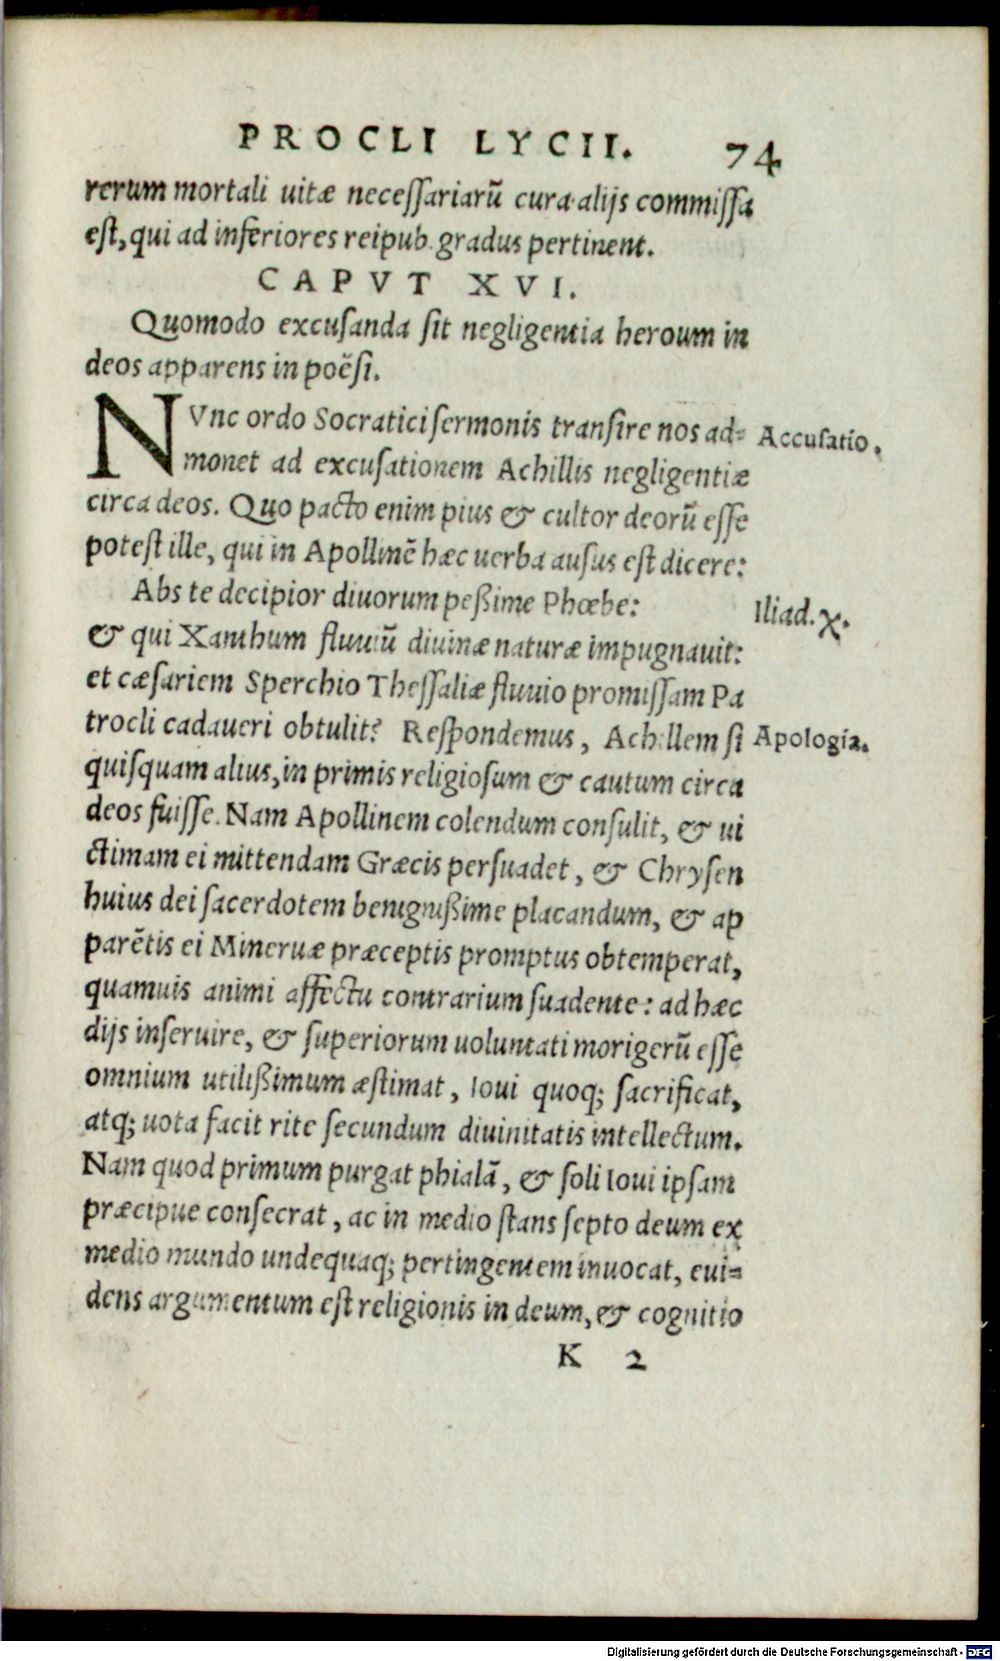 PROCLI LYCII. 74
rerum mortali uitæ necessariarũ cura alijs commissa
est, qui ad inferiores reipub. gradus pertinent.
CAPVT XVI.
Quomodo excusanda sit negligentia heroum in
deos apparens in poësi.
NVnc ordo Socratici sermonis transire nos ad= Accusatio.
monet ad excusationem Achillis negligentiæ
circa deos. Quo pacto enim pius & cultor deorũ esse
potest ille, qui in Apollinẽ hæc uerba ausus est dicere:
Abs te decipior diuorum peßime Phœbe: Iliad. χ.
& qui Xanthum fluuiũ diuinæ naturæ impugnauit:
et cæsariem Sperchio Thessaliæ fluuio promissam Pa
trocli cadaueri obtulit? Respondemus, Achillem si Apologia.
quisquam alius, in primis religiosum & cautum circa
deos fuisse. Nam Apollinem colendum consulit, & ui
ctimam ei mittendam Græcis persuadet, & Chrysen
huius dei sacerdotem benignißime placandum, & ap
parẽtis ei Mineruæ præceptis promptus obtemperat,
quamuis animi affectu contrarium suadente: ad hæc
dijs inseruire, & superiorum uoluntati morigerũ esse
omnium utilißimum æstimat, Ioui quoq; sacrificat,
atq; uota facit rite secundum diuinitatis intellectum.
Nam quod primum purgat phialã, & soli Ioui ipsam
præcipue consecrat, ac in medio stans septo deum ex
medio mundo undequaq; pertingentem inuocat, eui=
dens argumentum est religionis in deum, & cognitio
K 2
Digitalisierung gefördert durch die Deutsche Forschungsgemeinschaft - DFG